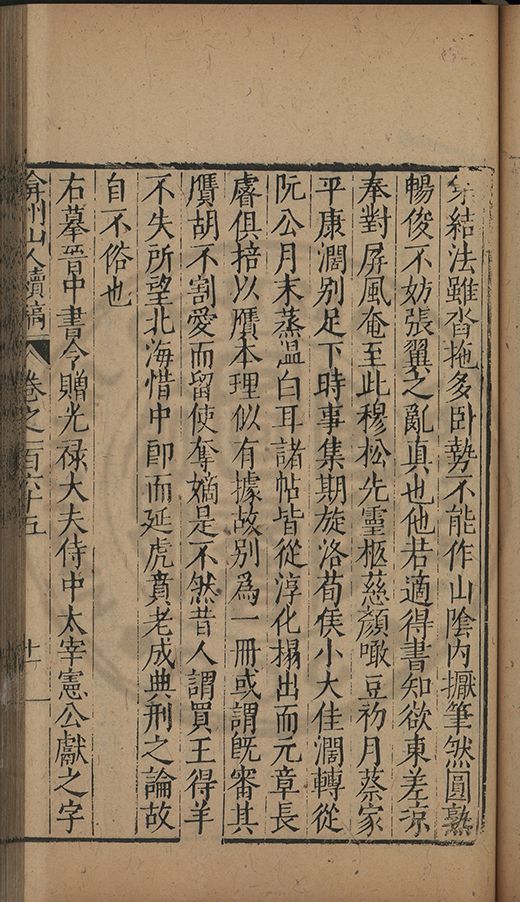 結法雖沓拖多卧勢不能作山陰內擫筆然圓熟
暢俊不妨張翼之亂真也他若適得書知欲東差涼
奉對屏風奄至此穆松先靈柩慈顏噉豆初月蔡家
平康濶別足下時事集期旋洛荀侯小大佳濶轉從
阮公月末蒸溫白耳諸帖皆從淳化搨出而元章長
睿俱掊以贋本理似有據故別爲一冊或謂旣審其
贋胡不割愛而留使奪嫡是不然昔人謂買王得羊
不失所望北海惜中郎而延虎賁老成典刑之論故
自不俗也
右摹晉中書令贈光禄大夫侍中太宰憲公獻之字
弇州山人續稿 卷之一百六十五 十一